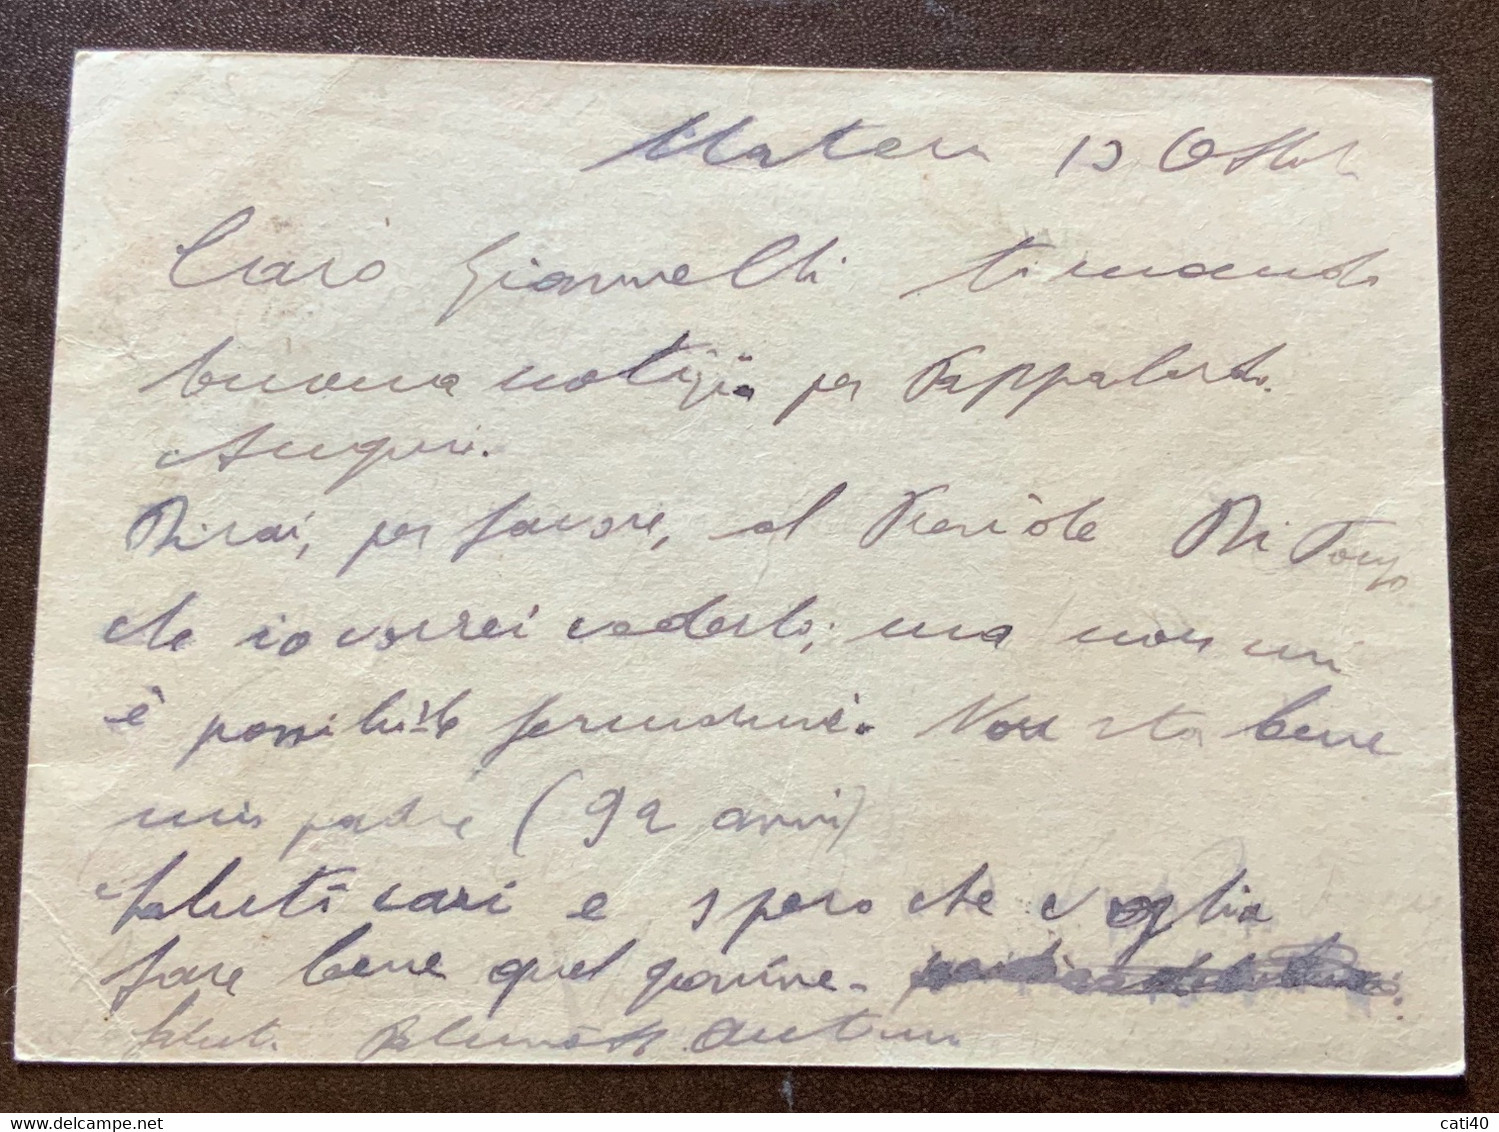 Matera 13 Ottob
Caro Giannelli ti mando
buona notizia per Pappalardo.
Auguri.
Dirai, per favore, al Di
che io vorrei vederlo; ma non mi
è possibile fermarmi. Non sta bene
mio padre (92 anni)
Saluti cari e spero che voglia
fare bene quel giovine.
Saluti
cati40